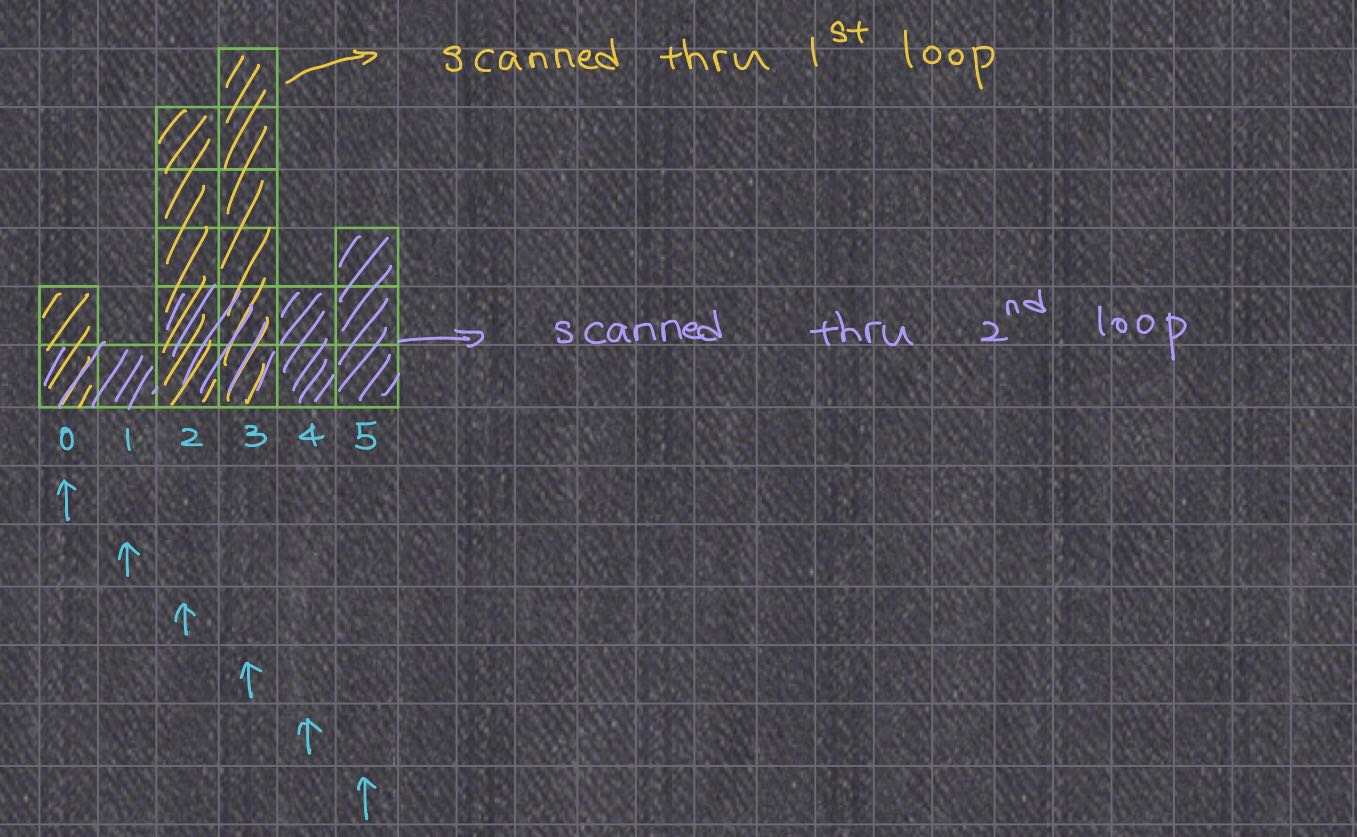 scanned thru 1st loop
scanned thru 2nd loop
0 1 2 3 4 5